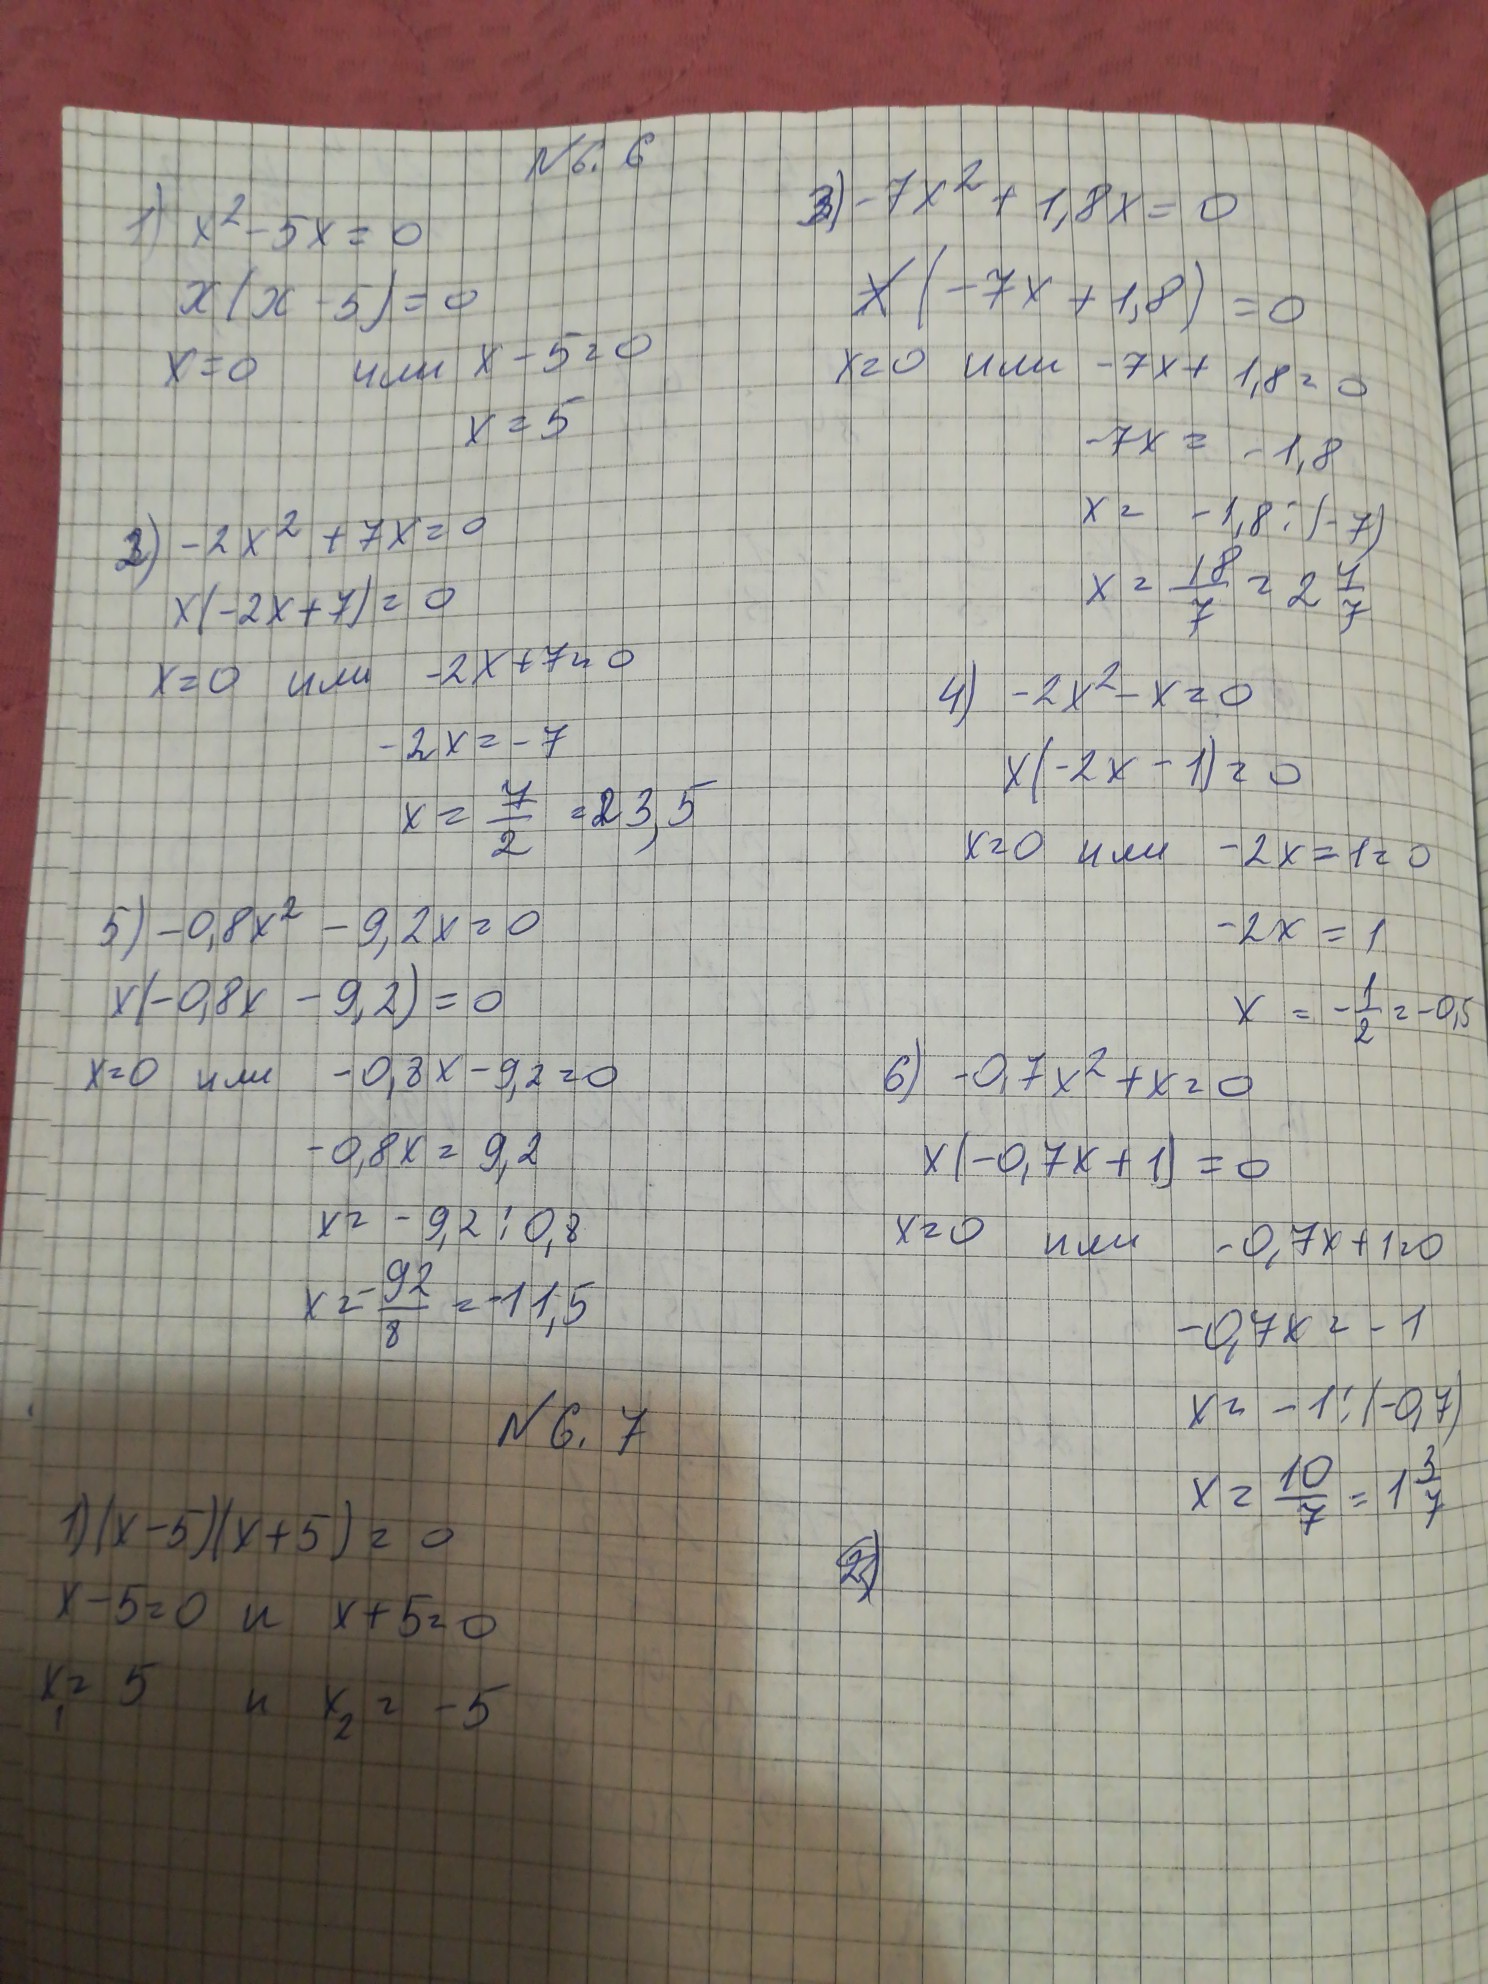 N 6.6
1) x² - 5x = 0
x(x - 5) = 0
x = 0 или x - 5 = 0
x = 5
2) -2x² + 7x = 0
x(-2x + 7) = 0
x = 0 или -2x + 7 = 0
-2x = -7
x = 7/2 = 3,5
3) -7x² + 1,8x = 0
x(-7x + 1,8) = 0
x = 0 или -7x + 1,8 = 0
-7x = -1,8
x = -1,8 : (-7)
x = 18/7 = 2 4/7
4) -2x² - x = 0
x(-2x - 1) = 0
x = 0 или -2x = 1 = 0
-2x = 1
x = -1/2 = -0,5
5) -0,8x² - 9,2x = 0
x(-0,8x - 9,2) = 0
x = 0 или -0,8x - 9,2 = 0
-0,8x = 9,2
x = -9,2 : 0,8
x = -92/8 = -11,5
6) -0,7x² + x = 0
x(-0,7x + 1) = 0
x = 0 или -0,7x + 1 = 0
-0,7x = -1
x = -1 : (-0,7)
x = 10/7 = 1 3/7
N 6.7
1) (x - 5)(x + 5) = 0
x - 5 = 0 и x + 5 = 0
x₁ = 5 и x₂ = -5
2)